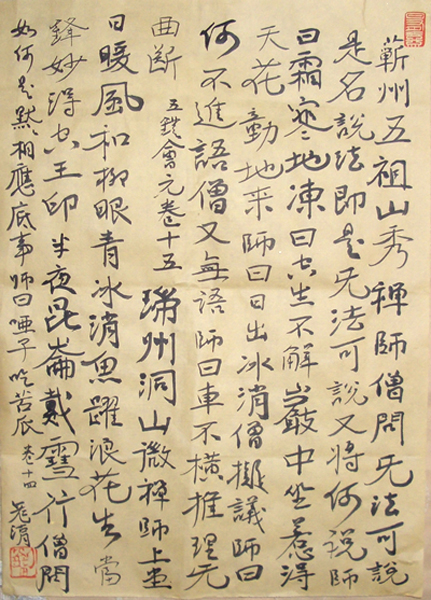 蘄州五祖山秀禪師僧問无法可說
是名說法即是无法可說又將何説師
曰霜寒地凍曰空生不解巖中坐惹得
天花動地来師曰日出冰消僧擬議師曰
何不進語僧又無語師曰車不横推理无
曲断 五燈會元卷十五 瑞州洞山微禪師上堂
日暖風和柳眼青冰消魚躍浪花生當
鋒妙得空王印半夜昆崙戴雪行僧問
如何是默々相應底事師曰唖子吃苦瓜 卷十四